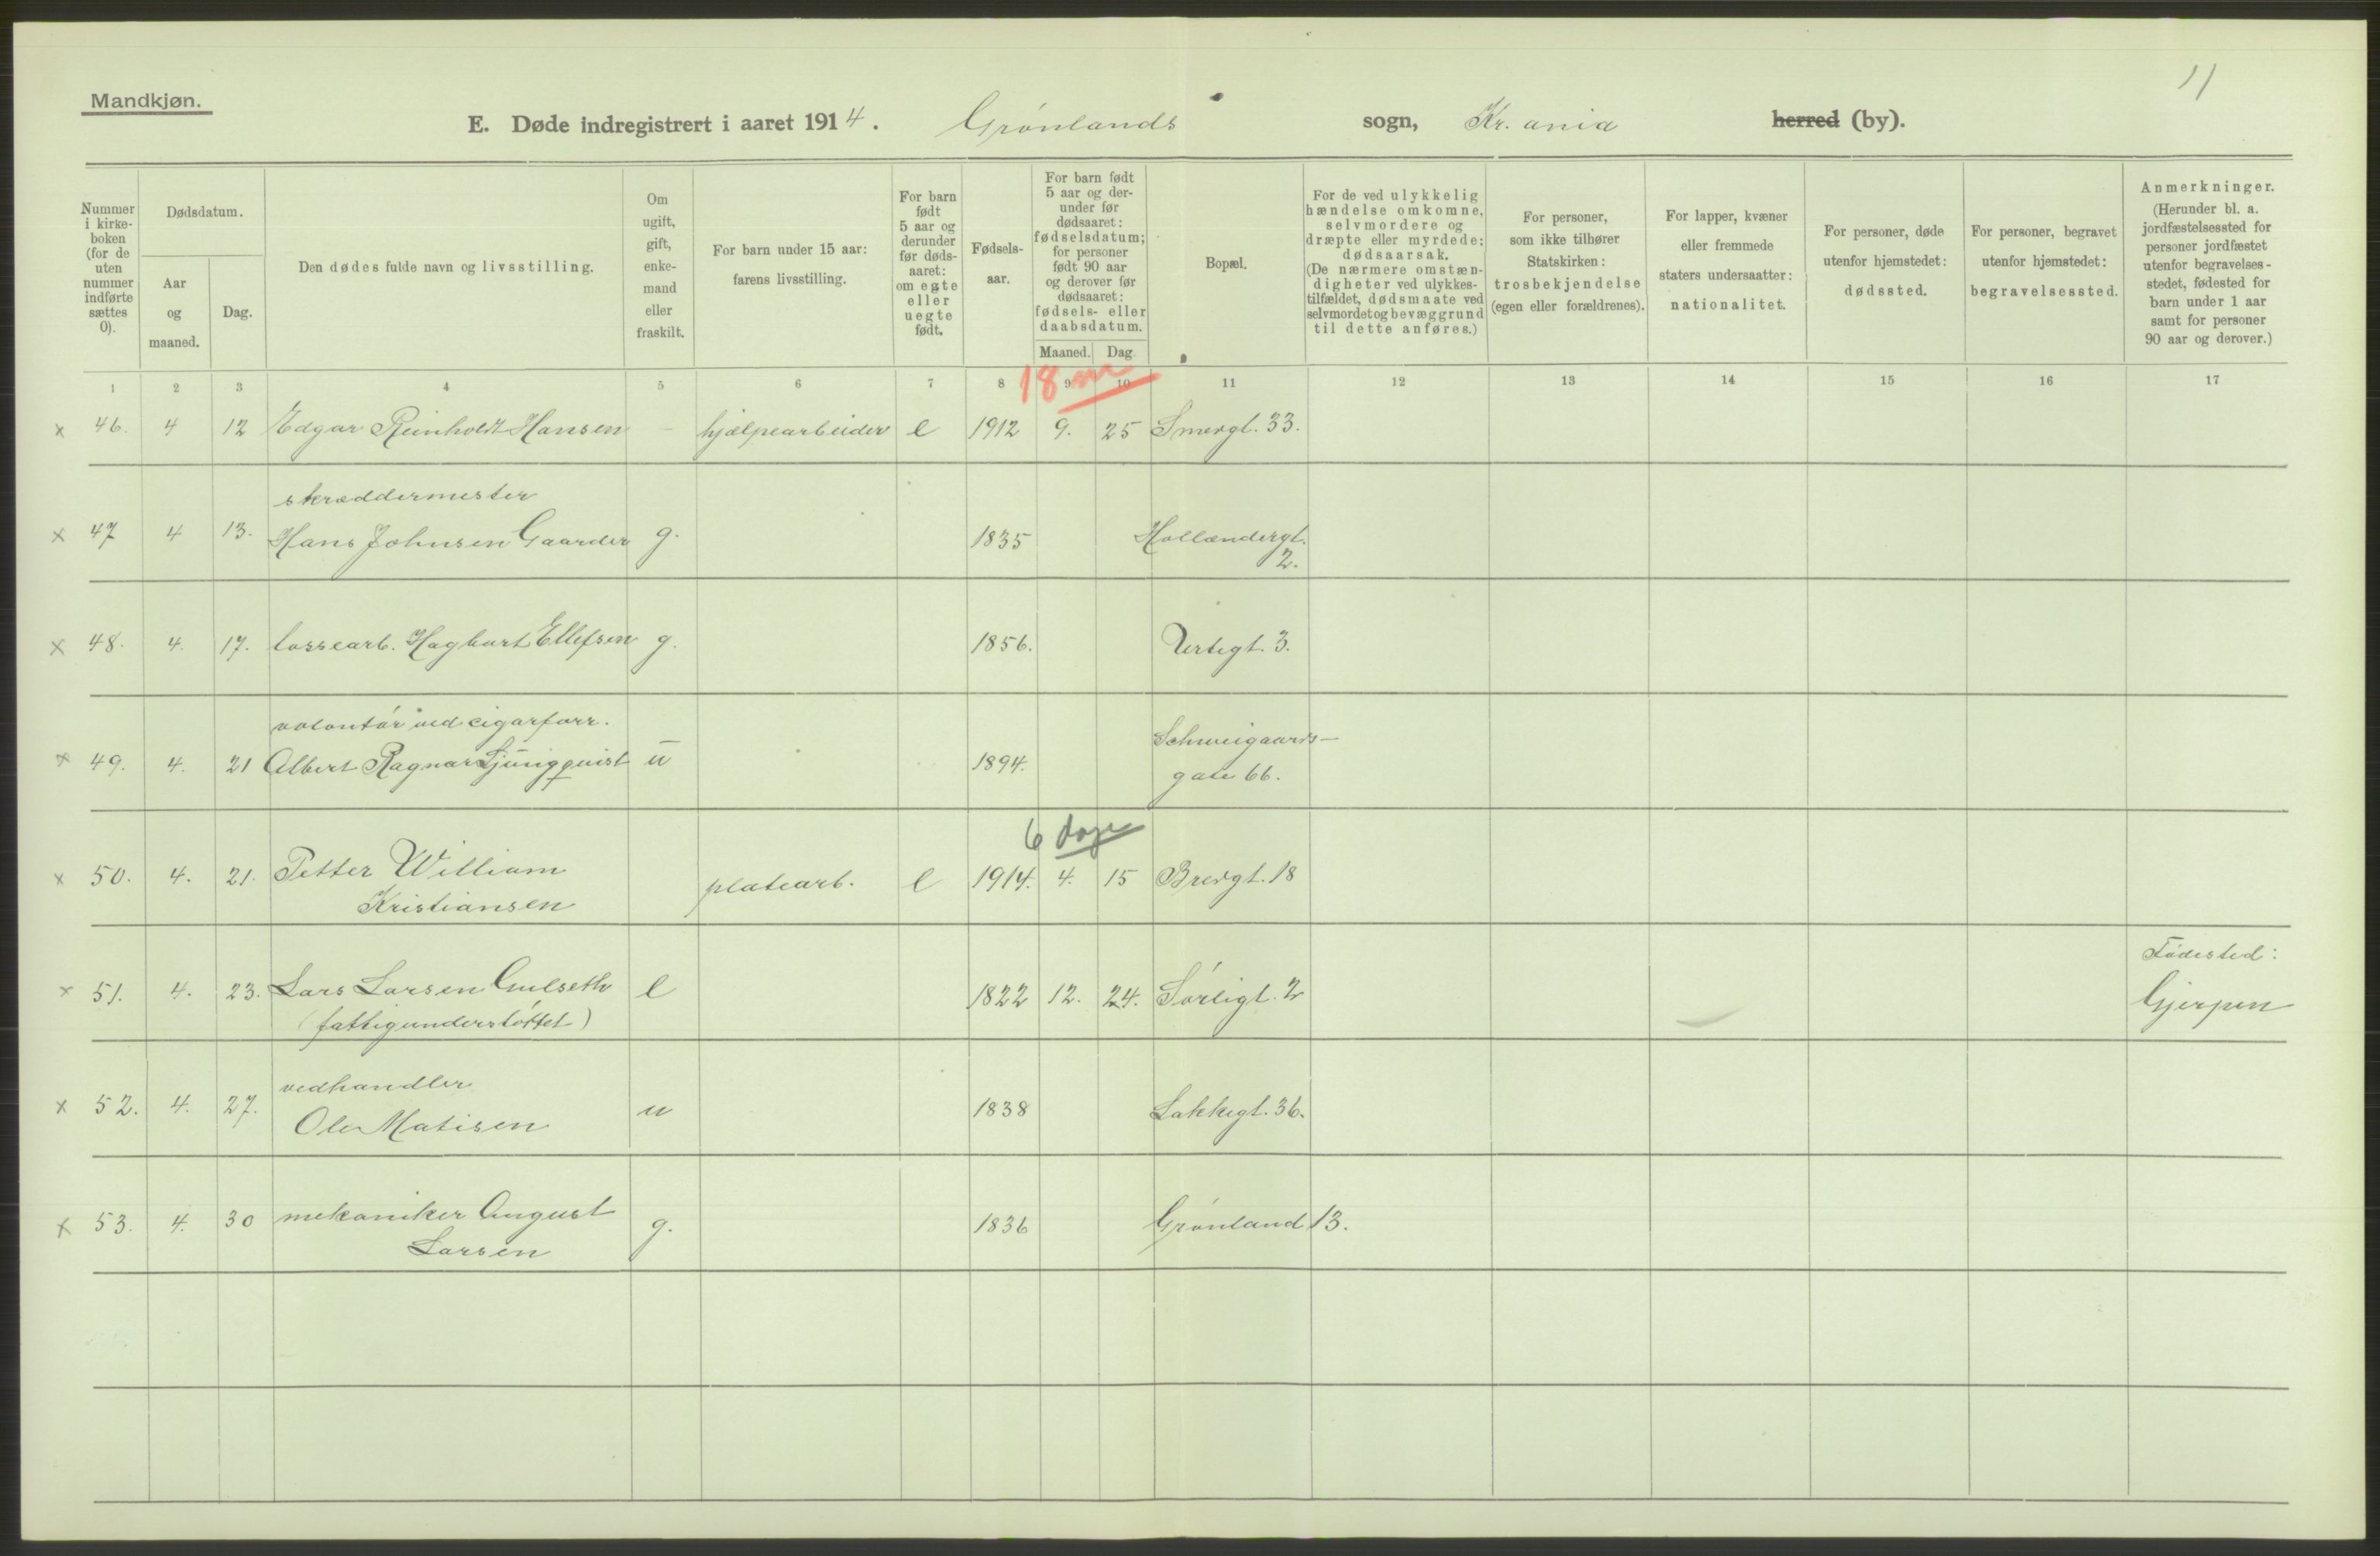 11
Mandkjøn.
E. Døde indregistrert i aaret 1914. Grønlands sogn, Kr.ania herred (by).
Nummer i kirke-boken (for de uten nummer indførte sættes 0).
Dødsdatum.
Aar og maaned.
Dag.
Den dødes fulde navn og livsstilling.
Om ugift, gift, enke-mand eller fraskilt.
For barn under 15 aar: farens livsstilling.
For barn født 5 aar og derunder før døds-aaret: om egte eller uegte født.
Fødsels-aar.
For barn født 5 aar og der-under før dødsaaret: fødselsdatum; for personer født 90 aar og derover før dødsaaret: fødsels- eller daabsdatum.
Maaned. Dag.
Bopæl.
For de ved ulykkelig hændelse omkomne, selvmordere og dræpte eller myrdede: dødsaarsak. (De nærmere omstæn-digheter ved ulykkes-tilfældet, dødsmaate ved selvmordet og bevæggrund til dette anføres.)
For personer, som ikke tilhører Statskirken: trosbekjendelse (egen eller forældrenes).
For lapper, kvæner eller fremmede staters undersaatter: nationalitet.
For personer, døde utenfor hjemstedet: dødssted.
For personer, begravet utenfor hjemstedet: begravelsessted.
Anmerkninger. (Herunder bl. a. jordfæstelsessted for personer jordfæstet utenfor begravelses-stedet, fødested for barn under 1 aar samt for personer 90 aar og derover.)
1 2 3 4 5 6 7 8 9 10 11 12 13 14 15 16 17
18 m
x 46. 4 12 Edgar Reinholdt Hansen – hjælpearbeider e 1912 9. 25 Smedgt. 33.
skræddermester
x 47 4 13. Hans Johnsen Gaarder g. 1835 Hollændergt.
2.
x 48. 4. 17. lossearb. Hagbart Ellefsen g. 1856. Urtegt. 3.
volontør ved cigarforr.
x 49. 4. 21 Albert Ragnar Ljungquist u 1894. Schweigaards-
gate 66.
6 dage
x 50. 4. 21. Petter William
Kristiansen platearb. e 1914. 4. 15 Bredgt. 18
Fødested:
x 51. 4. 23. Lars Larsen Gulseth e 1822 12. 24. Sørligt. 2 Gjerpen
(fattigunderstøttet)
vedhandler
x 52. 4. 27. Ole Matisen u 1838 Lakkegt. 36.
x 53. 4. 30 mekaniker August
Larsen g. 1836 Grønland 13.